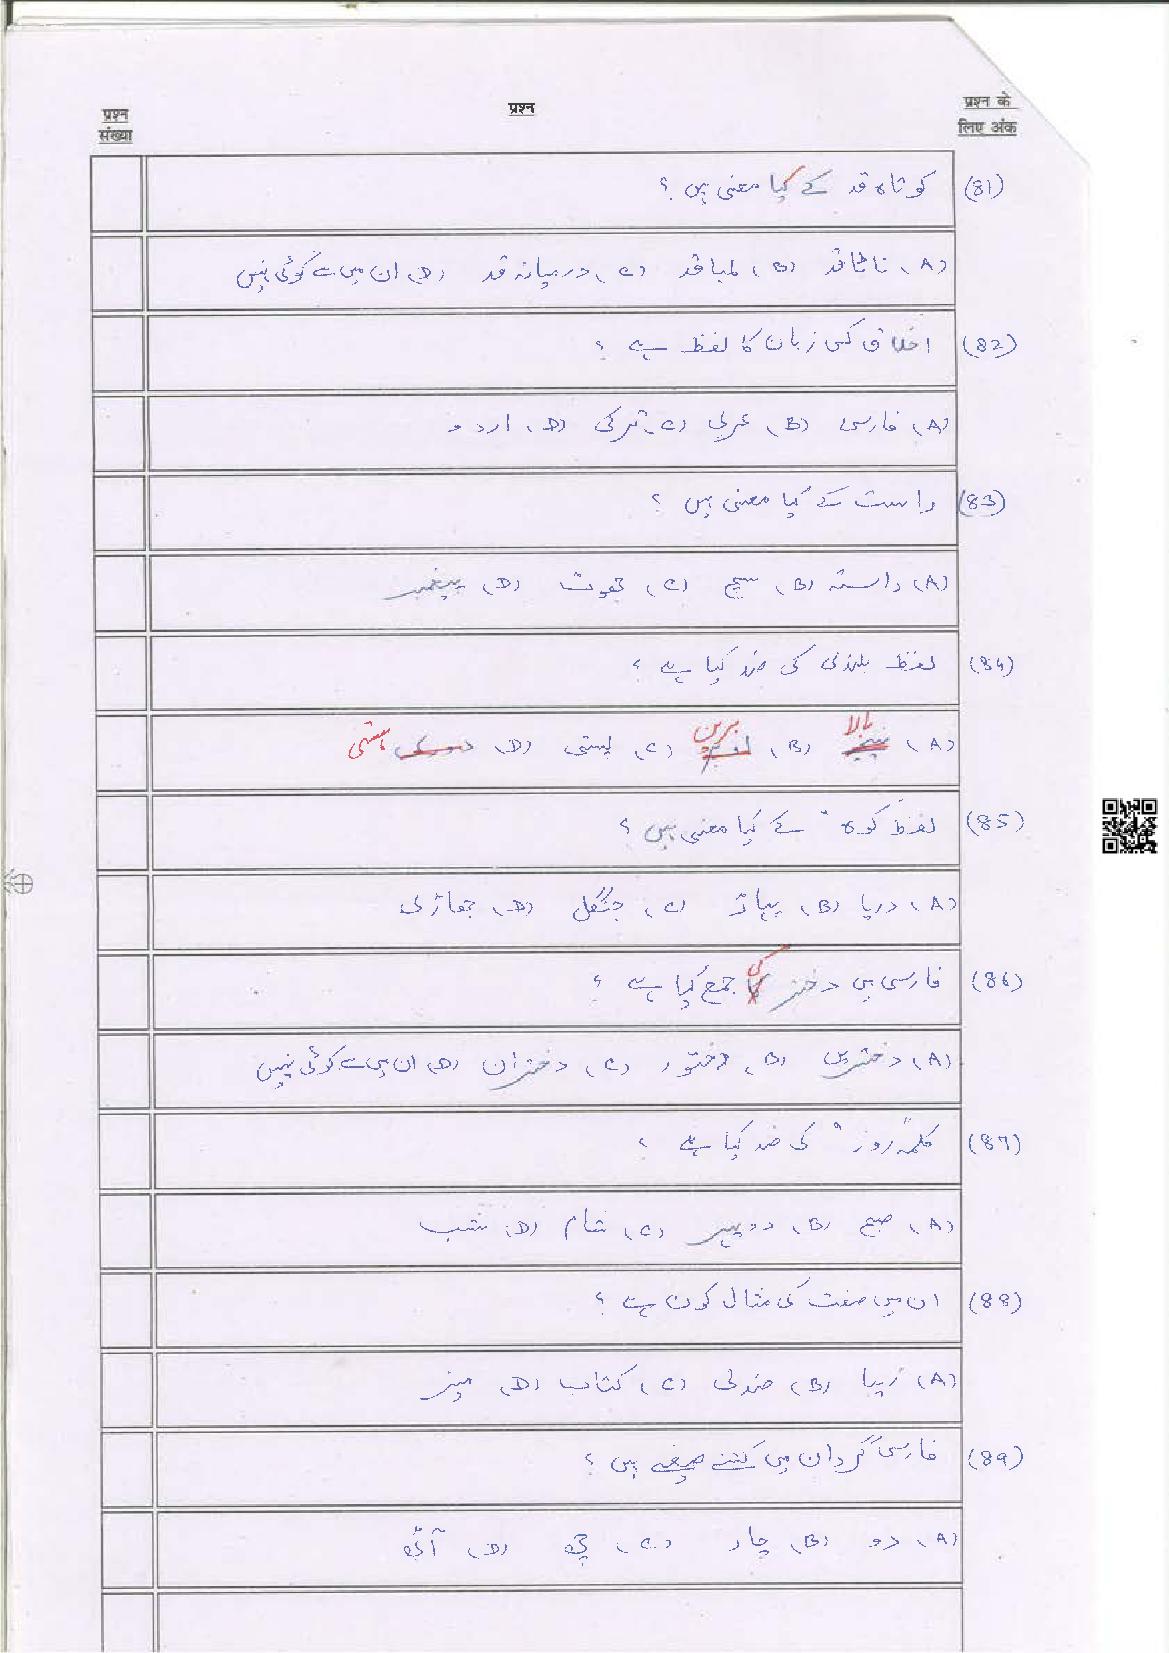 प्रश्न संख्या
प्रश्न
प्रश्न के लिए अंक
(81) کوتاہ قد کے کیا معنی ہیں ؟
(A) ناٹا قد (B) لمبا قد (C) درمیانہ قد (D) ان میں سے کوئی نہیں
(82) اخلاق کس زبان کا لفظ ہے ؟
(A) فارسی (B) عربی (C) ترکی (D) اردو
(83) راست کے کیا معنی ہیں ؟
(A) راستہ (B) سچ (C) جھوٹ (D) پیغمبر
(84) لفظ بلندی کی ضد کیا ہے ؟
(A) بالا (B) برین (C) پستی (D) ہستی
(85) لفظ "کوہ" کے کیا معنی ہیں ؟
(A) دریا (B) پہاڑ (C) جنگل (D) جھاڑی
(86) فارسی میں دختر کی جمع کیا ہے ؟
(A) دختریں (B) دختور (C) دختران (D) ان میں سے کوئی نہیں
(87) کلمہ "روز" کی ضد کیا ہے ؟
(A) صبح (B) دوپہر (C) شام (D) شب
(88) ان میں صفت کی مثال کون ہے ؟
(A) زیبا (B) صندلی (C) کتاب (D) میز
(89) فارسی گردان میں کتنے صیغے ہیں ؟
(A) دو (B) چار (C) چھ (D) آٹھ